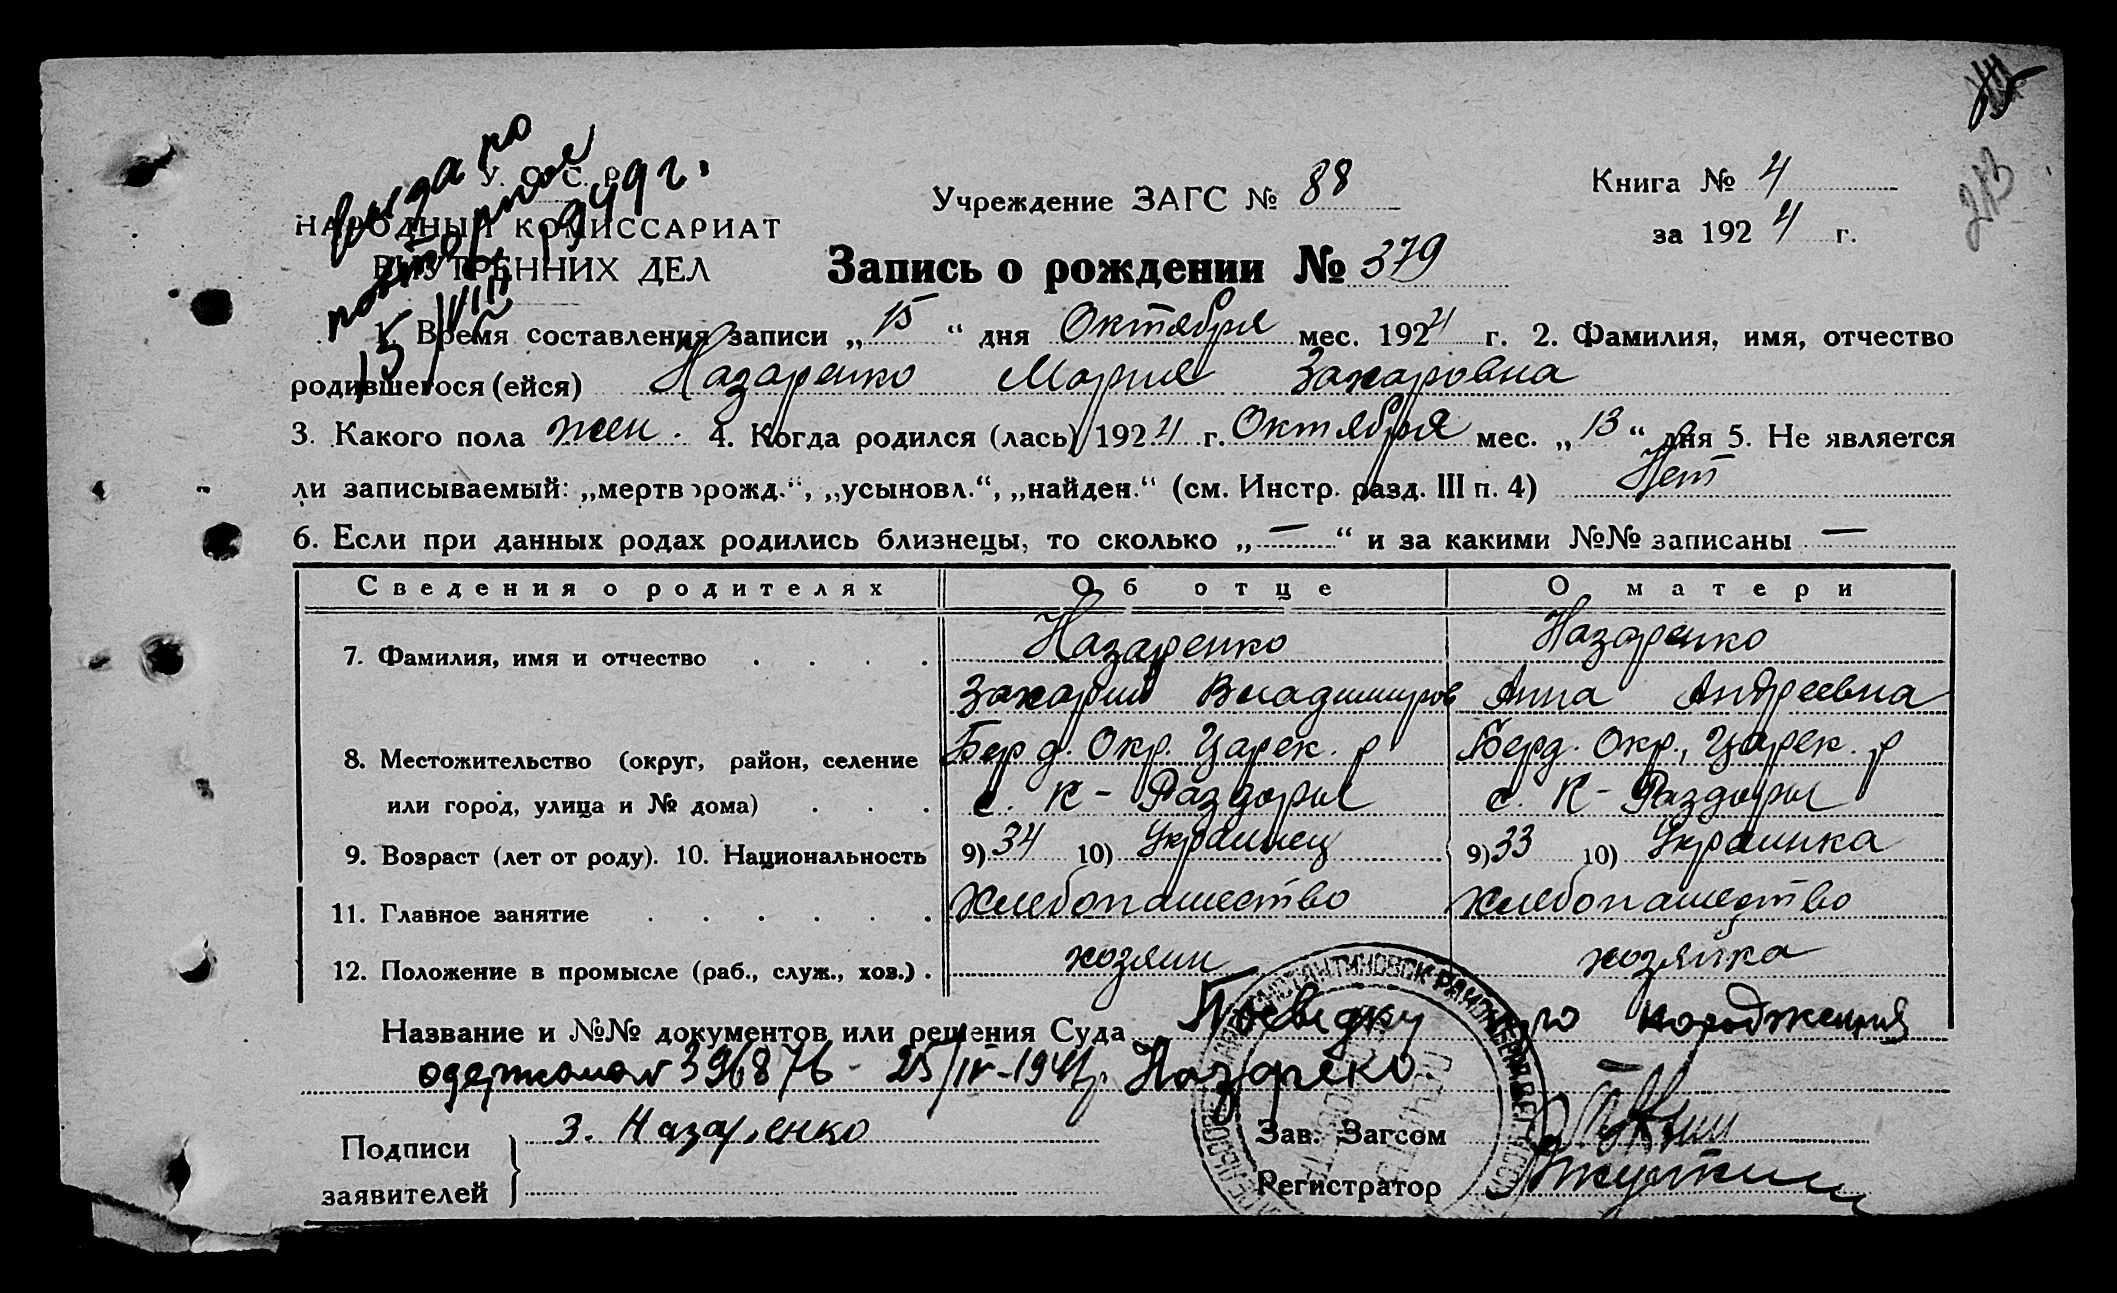 У. С. С. Р.
НАРОДНЫЙ КОМИССАРИАТ
ВНУТРЕННИХ ДЕЛ
выдано
повторное
15/VIII 1949 г.
Учреждение ЗАГС № 88
Книга № 4
за 1924 г.
213
Запись о рождении № 379
1. Время составления записи „15“ дня Октября мес. 1924 г. 2. Фамилия, имя, отчество
родившегося (ейся) Назаренко Мария Захаровна
3. Какого пола жен. 4. Когда родился (лась) 1924 г. Октября мес. „13“ дня 5. Не является
ли записываемый: „мертворожд.“, „усыновл.“, „найден.“ (см. Инстр. разд. III п. 4) Нет
6. Если при данных родах родились близнецы, то сколько „—“ и за какими №№ записаны —
Сведения о родителях Об отце О матери
7. Фамилия, имя и отчество . . . . Назаренко Назаренко
Захарий Владимиров Анна Андреевна
8. Местожительство (округ, район, селение Берд. Окр. Царек. р Берд. Окр., Царек. р
или город, улица и № дома) . . . с. К-Раздоры с. К-Раздоры
9. Возраст (лет от роду). 10. Национальность 9) 34 10) Украинец 9) 33 10) Украинка
11. Главное занятие . . . . . . Хлебопашество Хлебопашество
12. Положение в промысле (раб., служ., хоз.) . хозяин хозяйка
Название и №№ документов или решения Суда Посвідку про народження
одержала № 396876 - 25/IV-1941р. Назаренко
Подписи
заявителей
З. Назаренко
Зав. Загсом
Регистратор